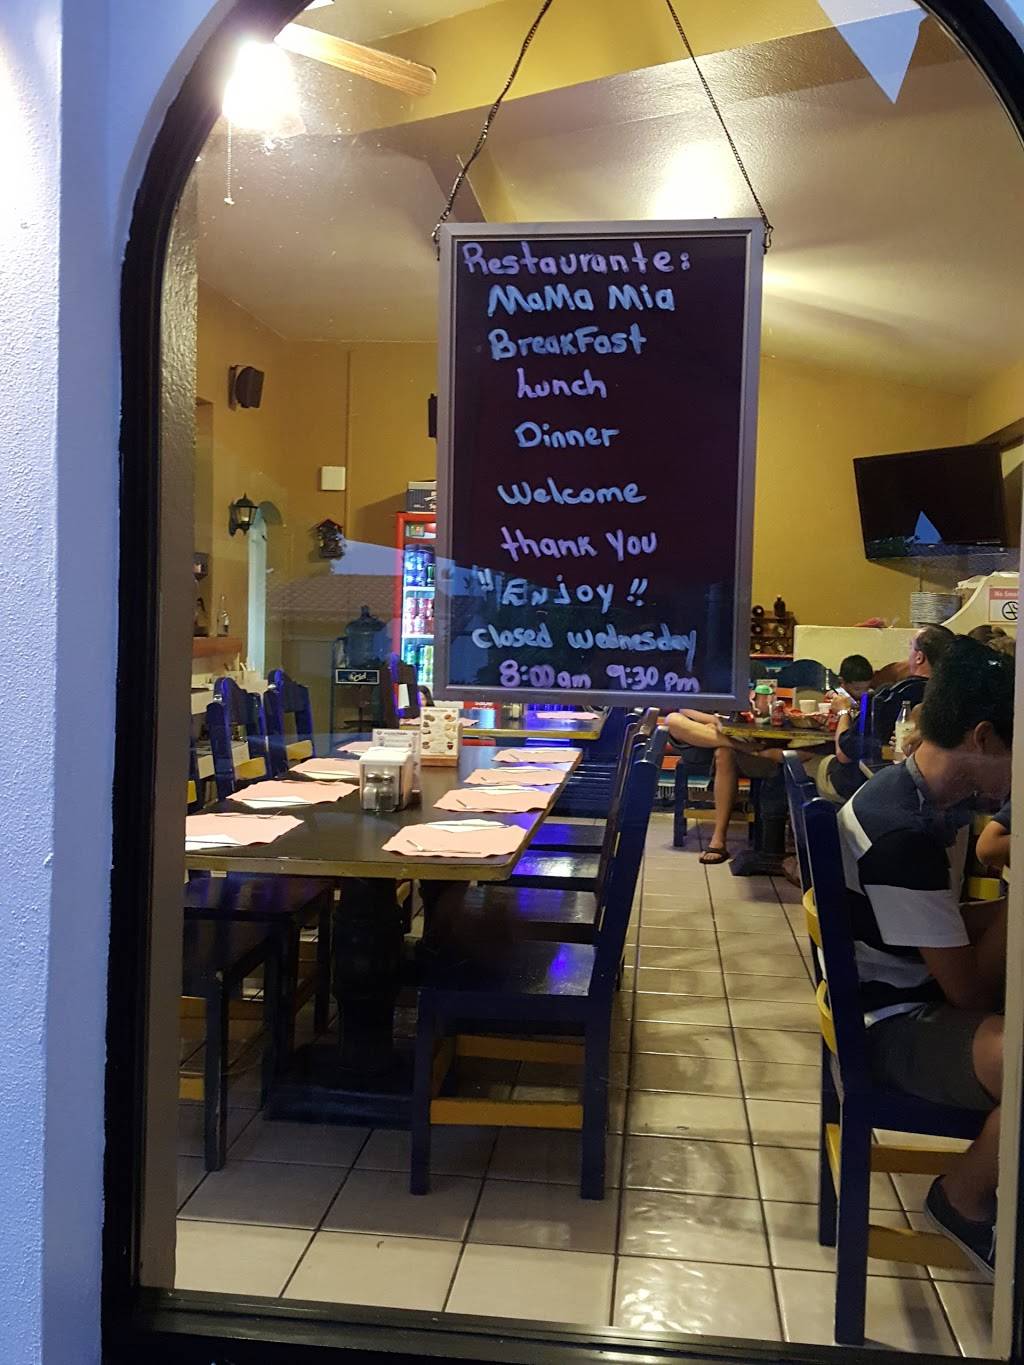 Restaurante:
MaMa Mia
BreakFast
Lunch
Dinner
Welcome
thank you
"Enjoy!!
closed wednesday
8:00am 9:30 pm